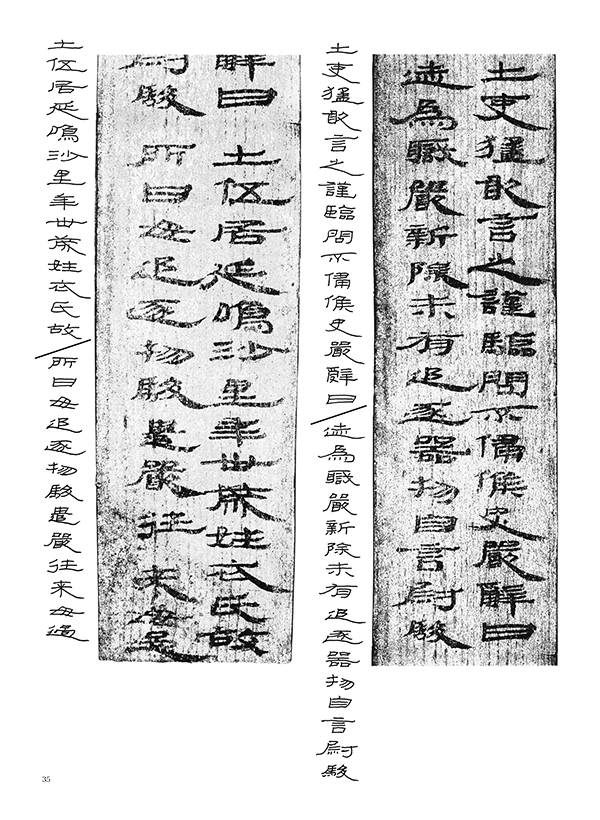 士吏猛敢言之謹驗問不侵候史嚴辭曰
迹為職嚴新除未有追逐器物自言尉駿
士吏猛敢言之謹驗問不侵候史嚴辭曰/迹為職嚴新除未有追逐器物自言尉駿
辭曰 士伍居延鳴沙里年卅歲姓衣氏故
尉駿 所曰毋追逐物駿遣嚴往來毋過
士伍居延鳴沙里年卅歲姓衣氏故/所曰毋追逐物駿遣嚴往來毋過
35